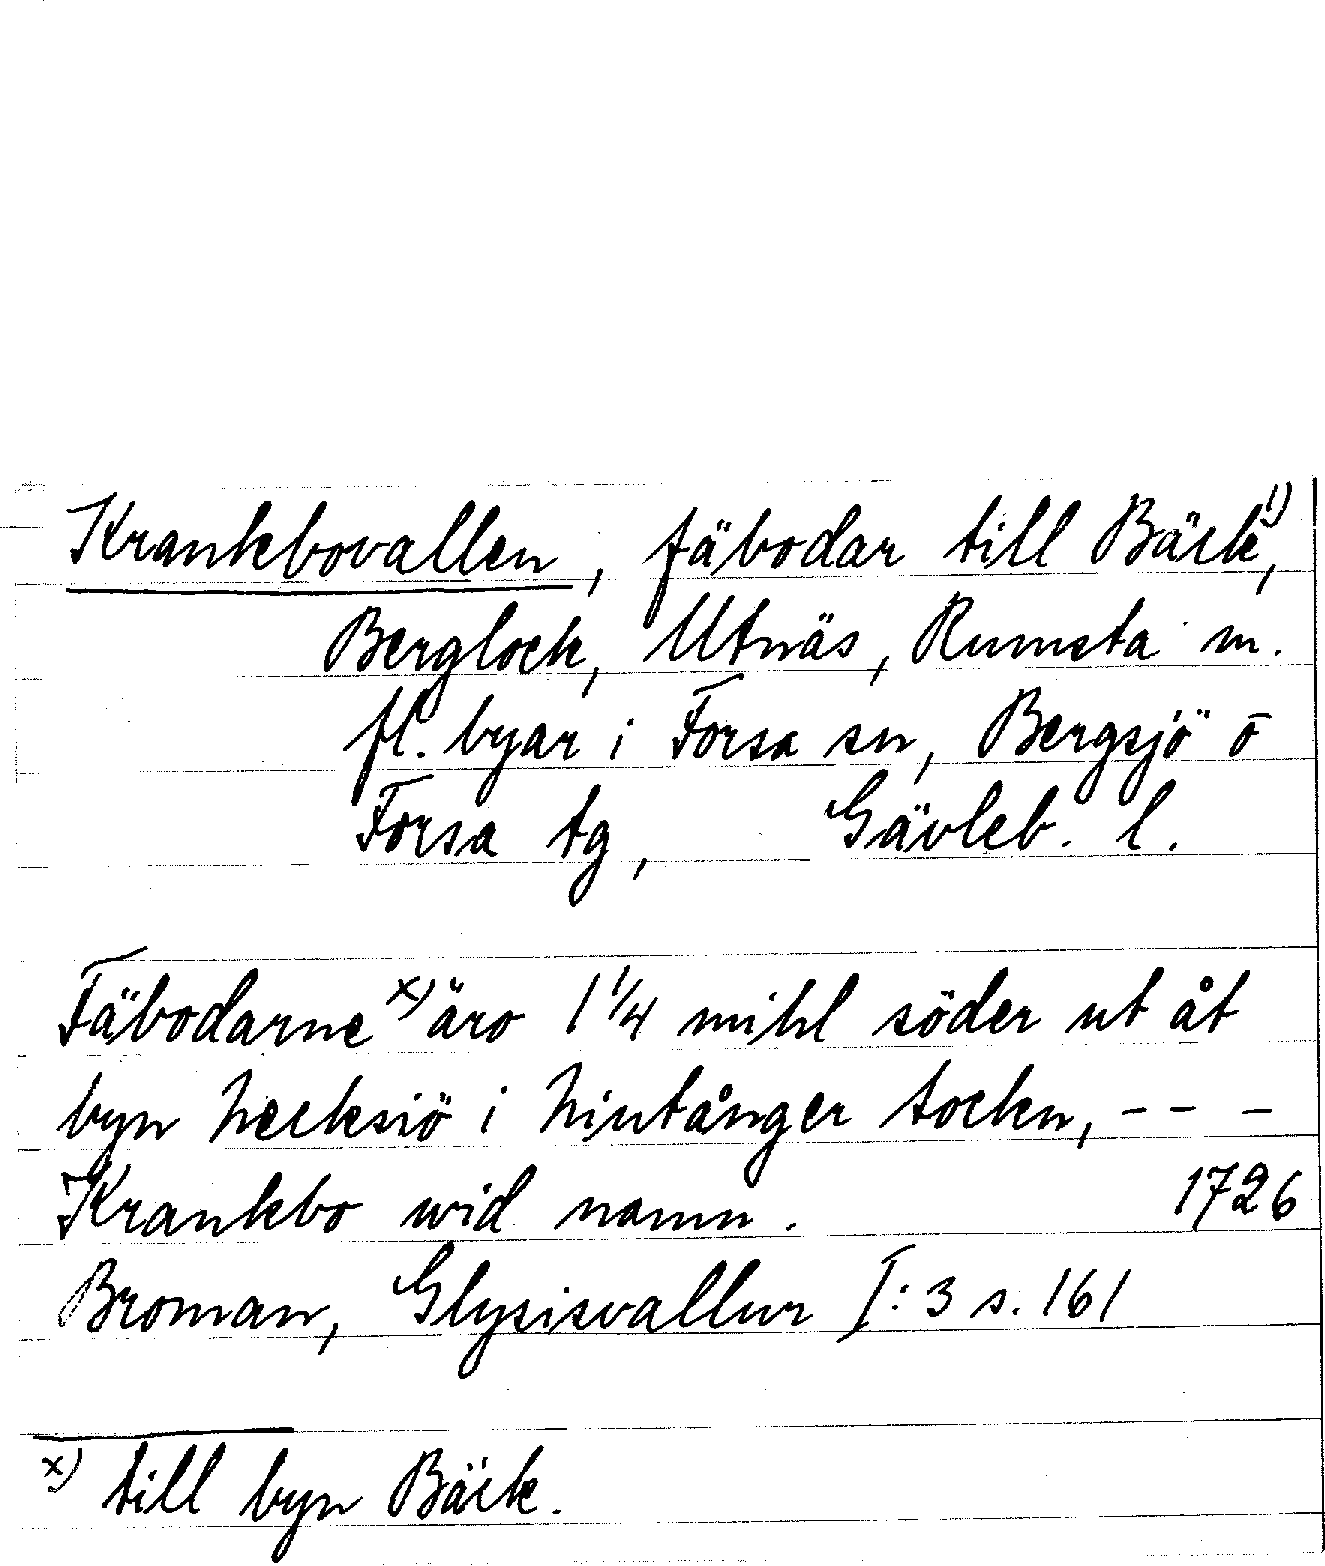 Krankbovallen, fäbodar till Bäck 1),
Berglock, Utnäs, Rumsta m.
fl. byar i Forsa sn, Bergsjö o
Forsa tg, Gävleb. l.
Fäbodarne x) äro 1 1/4 mihl söder ut åt
byn Necksiö i Nintånger sockn, - - -
Krankbo wid namn. 1726
Broman, Glysisvallur I:3 s. 161
x) till byn Bäck.